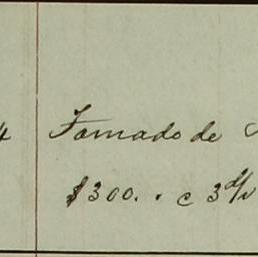 4 Tomado de
$300. . c 3 d/v